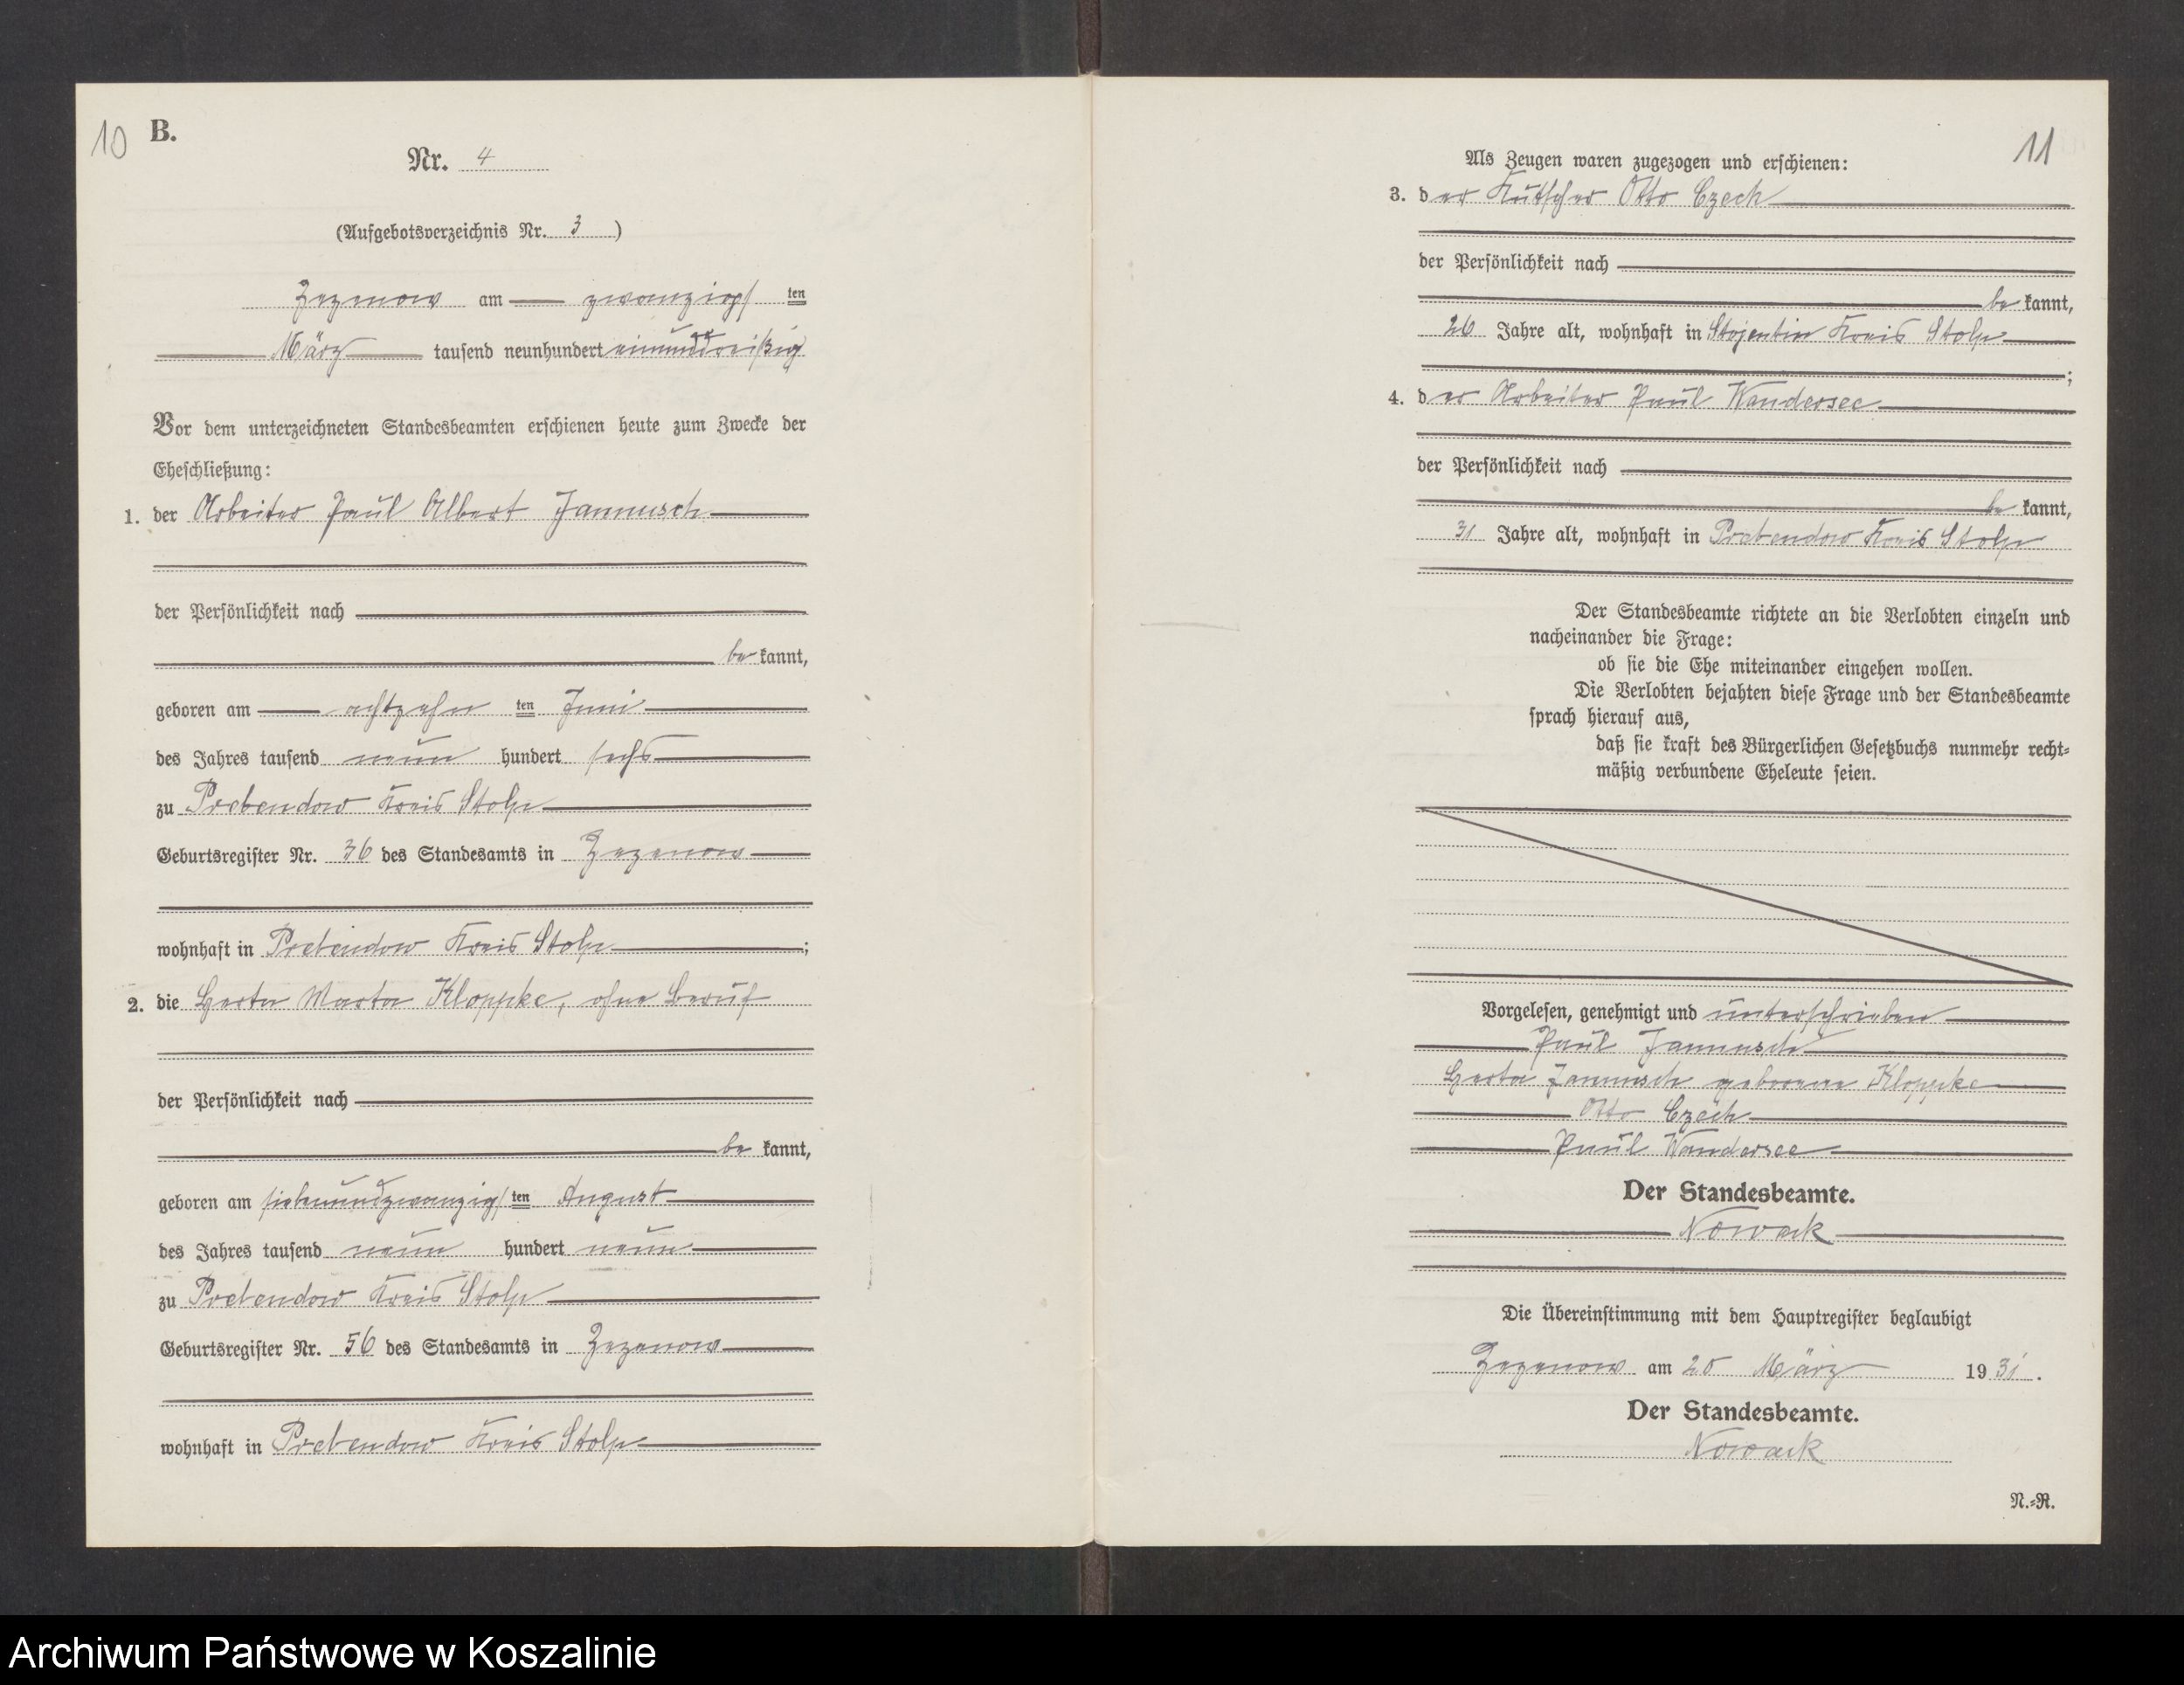 10 B.
Nr. 4
(Aufgebotsverzeichnis Nr. 3)
Zezenow am zwanzigsten
März tausend neunhundert einunddreißig
Vor dem unterzeichneten Standesbeamten erschienen heute zum Zwecke der
Eheschließung:
1. der Arbeiter Paul Albert Jannusch
der Persönlichkeit nach
bekannt,
geboren am achtzehnten Juni
des Jahres tausend neunhundert sechs
zu Prebendow Kreis Stolp
Geburtsregister Nr. 36 des Standesamts in Zezenow
wohnhaft in Prebendow Kreis Stolp;
2. die Herta Marta Kloppke, ohne Beruf
der Persönlichkeit nach
bekannt,
geboren am siebenundzwanzigsten August
des Jahres tausend neunhundert neun
zu Prebendow Kreis Stolp
Geburtsregister Nr. 56 des Standesamts in Zezenow
wohnhaft in Prebendow Kreis Stolp
11
Als Zeugen waren zugezogen und erschienen:
3. der Kutscher Otto Czech
der Persönlichkeit nach
bekannt,
26 Jahre alt, wohnhaft in Stojentin Kreis Stolp
;
4. der Arbeiter Paul Wandersee
der Persönlichkeit nach
bekannt,
31 Jahre alt, wohnhaft in Prebendow Kreis Stolp
Der Standesbeamte richtete an die Verlobten einzeln und
nacheinander die Frage:
ob sie die Ehe miteinander eingehen wollen.
Die Verlobten bejahten diese Frage und der Standesbeamte
sprach hierauf aus,
daß sie kraft des Bürgerlichen Gesetzbuchs nunmehr recht-
mäßig verbundene Eheleute seien.
Vorgelesen, genehmigt und unterschrieben
Paul Jannusch
Herta Jannusch geborene Kloppke
Otto Czech
Paul Wandersee
Der Standesbeamte.
Nowack
Die Übereinstimmung mit dem Hauptregister beglaubigt
Zezenow am 20 März 1931.
Der Standesbeamte.
Nowack
N.-R.
Archiwum Państwowe w Koszalinie